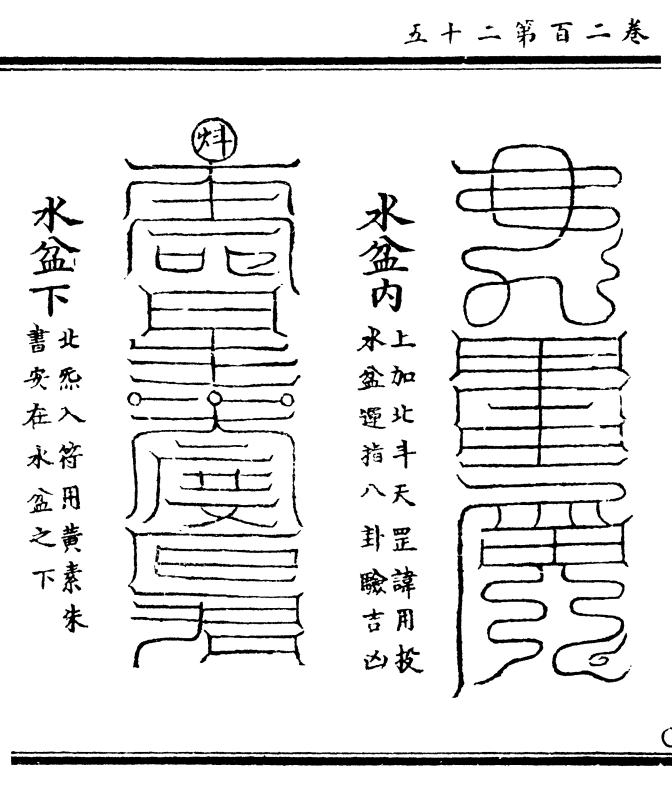 卷二百第二十五
水盆内
上加北斗天罡諱用投
水盆運指八卦驗吉凶
炓
水盆下
北炁入符用黃素朱
書安在水盆之下